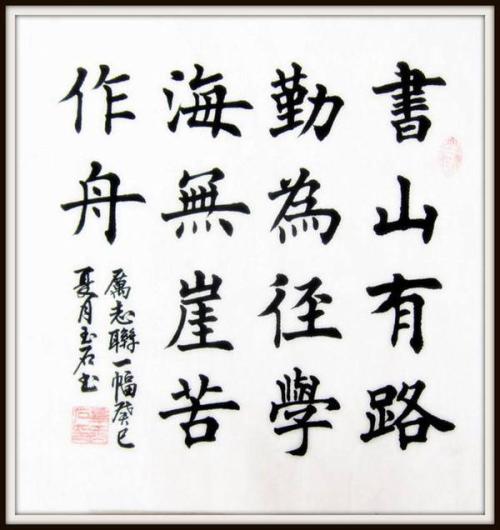 書山有路
勤為径學
海無崖苦
作舟
厲志聯一幅癸巳
夏月玉石书